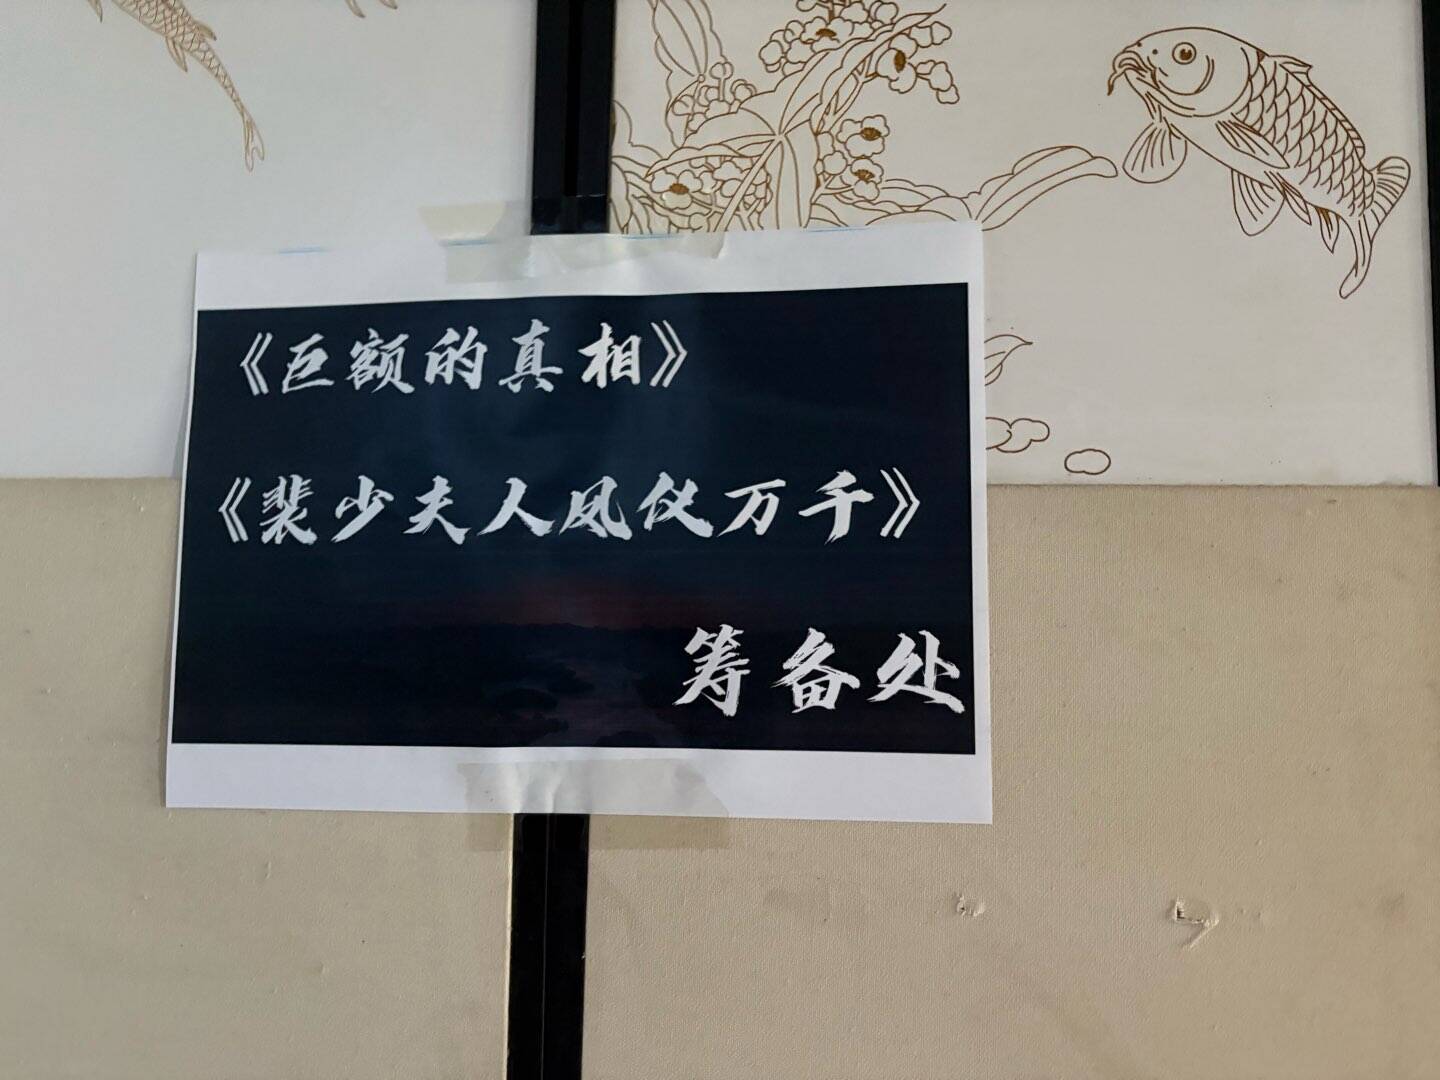 《巨额的真相》
《裴少夫人风仪万千》
筹备处